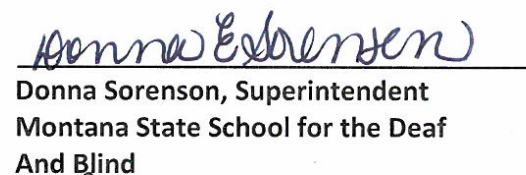 Donna E Sorensen
Donna Sorenson, Superintendent
Montana State School for the Deaf
And Blind